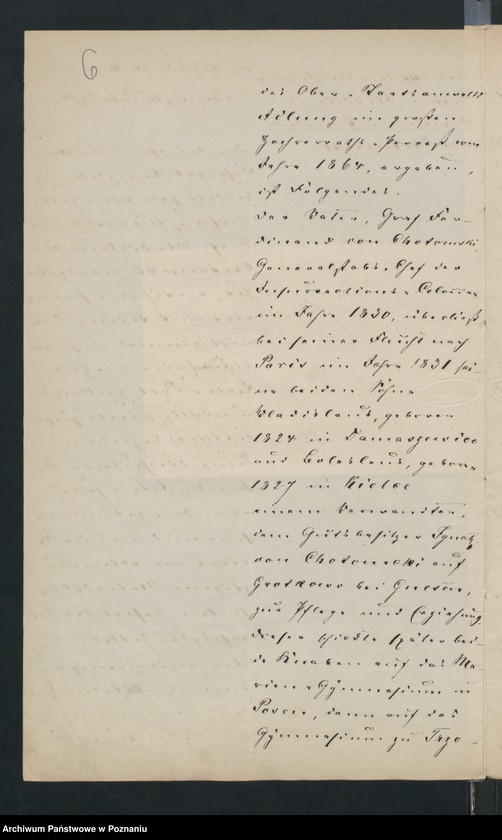 6
des Ober-Staatsanwalts
Adlung im großen
Hochverraths-Prozeß vom
Jahre 1864, ergeben,
ist Folgendes.
Der Vater, Graf Fer-
dinand von Chotomski,
Generalstabs-Chef der
Insurrections-Colonne
im Jahre 1830, überließ
bei seiner Flucht nach
Paris im Jahre 1831 sei-
ne beiden Söhne
Wladislaus, geboren
1824 in Damaszewice
und Boleslaus, geboren
1827 in Kielce
einem Verwandten,
dem Gutsbesitzer Ignatz
von Chotomski auf
Grotkowo bei Gnesen,
zur Pflege und Erziehung.
Dieser schickte später bei-
de Knaben auf das Ma-
rien-Gymnasium in
Posen, dann auf das
Gymnasium zu Trze-
Archiwum Państwowe w Poznaniu